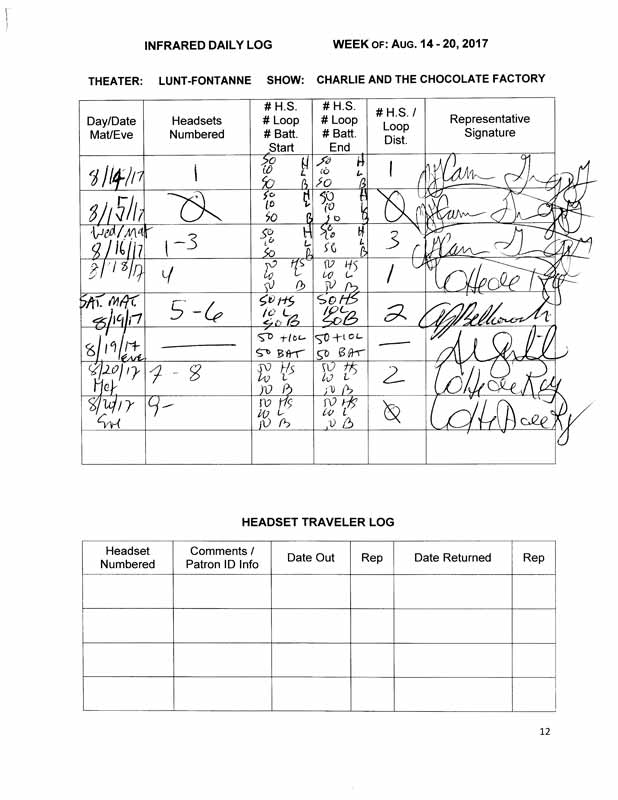 INFRARED DAILY LOG WEEK OF: AUG. 14 - 20, 2017
THEATER: LUNT-FONTANNE SHOW: CHARLIE AND THE CHOCOLATE FACTORY
Day/Date Mat/Eve Headsets Numbered # H.S. # Loop # Batt. Start # H.S. # Loop # Batt. End # H.S. / Loop Dist. Representative Signature
8/14/17 1 50 H 10 L 50 B 50 H 10 L 50 B 1
8/15/17 0 50 H 10 L 50 B 50 H 10 L 50 B 0
Wed/Mat 8/16/17 1-3 50 H 10 L 50 B 50 H 10 L 50 B 3
8/18/17 4 50 HS 10 L 50 B 50 HS 10 L 50 B 1
SAT. MAT. 8/19/17 5-6 50 HS 10 L 50 B 50 HS 10 L 50 B 2
8/19/17 eve — 50 +10L 50 BAT 50 +10L 50 BAT —
8/20/17 Mat 7 - 8 50 HS 10 L 50 B 50 HS 10 L 50 B 2
8/20/17 Eve 9- 50 HS 10 L 50 B 50 HS 10 L 50 B 0
HEADSET TRAVELER LOG
Headset Numbered Comments / Patron ID Info Date Out Rep Date Returned Rep
12